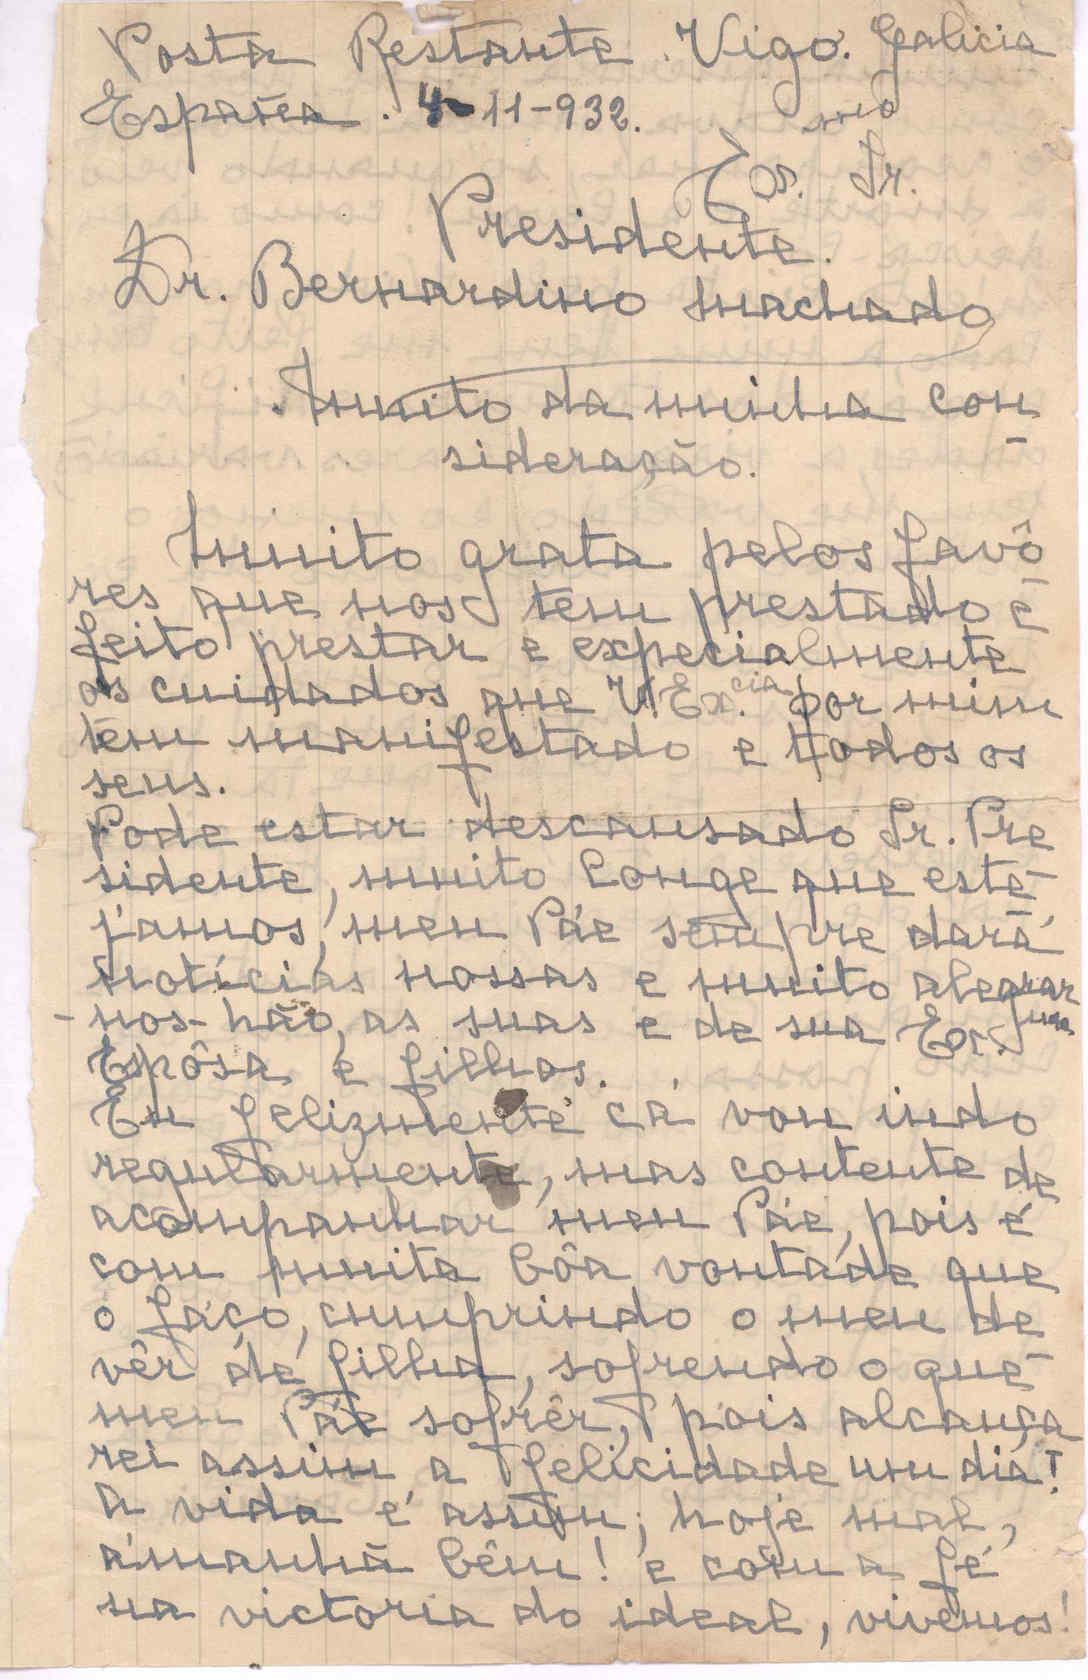 Posta Restante. Vigo. Galicia
España. 4-11-932.
Ex.mo Sr.
Presidente.
Dr. Bernardino Machado
Muito da minha con
sideração.
Muito grata pelos favô
res que nos tem prestado e
feito prestar e expecialmente
os cuidados que V. Ex.cia por mim
tem manifestado e todos os
seus.
Pode estar descansado Sr. Pre
sidente, muito longe que este-
jamos, meu Páe sempre dará
notícias nossas e muito alegrar
-nos-hão, as suas e de sua Ex.ma
Espôsa e filhos.
Eu felizmente cá vou indo
regularmente, mas contente de
acompanhar meu Páe, pois é
com muita bôa vontade que
o faço, cumprindo o meu de
vêr de filha, sofrendo o que
meu Páe sofrêr, pois alcança
rei assim a felicidade um dia!
A vida é assim; hoje mal,
ámanhã bêm! e com a fé
na victoria do ideal, vivêmos!